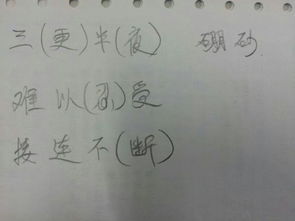 三(更)半(夜) 硼砂
难以(忍)受
接连不(断)